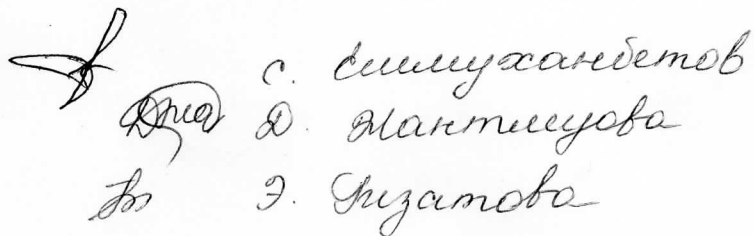 С. Ешмуханбетов
Д. Жантлеуова
Э. Ризатова